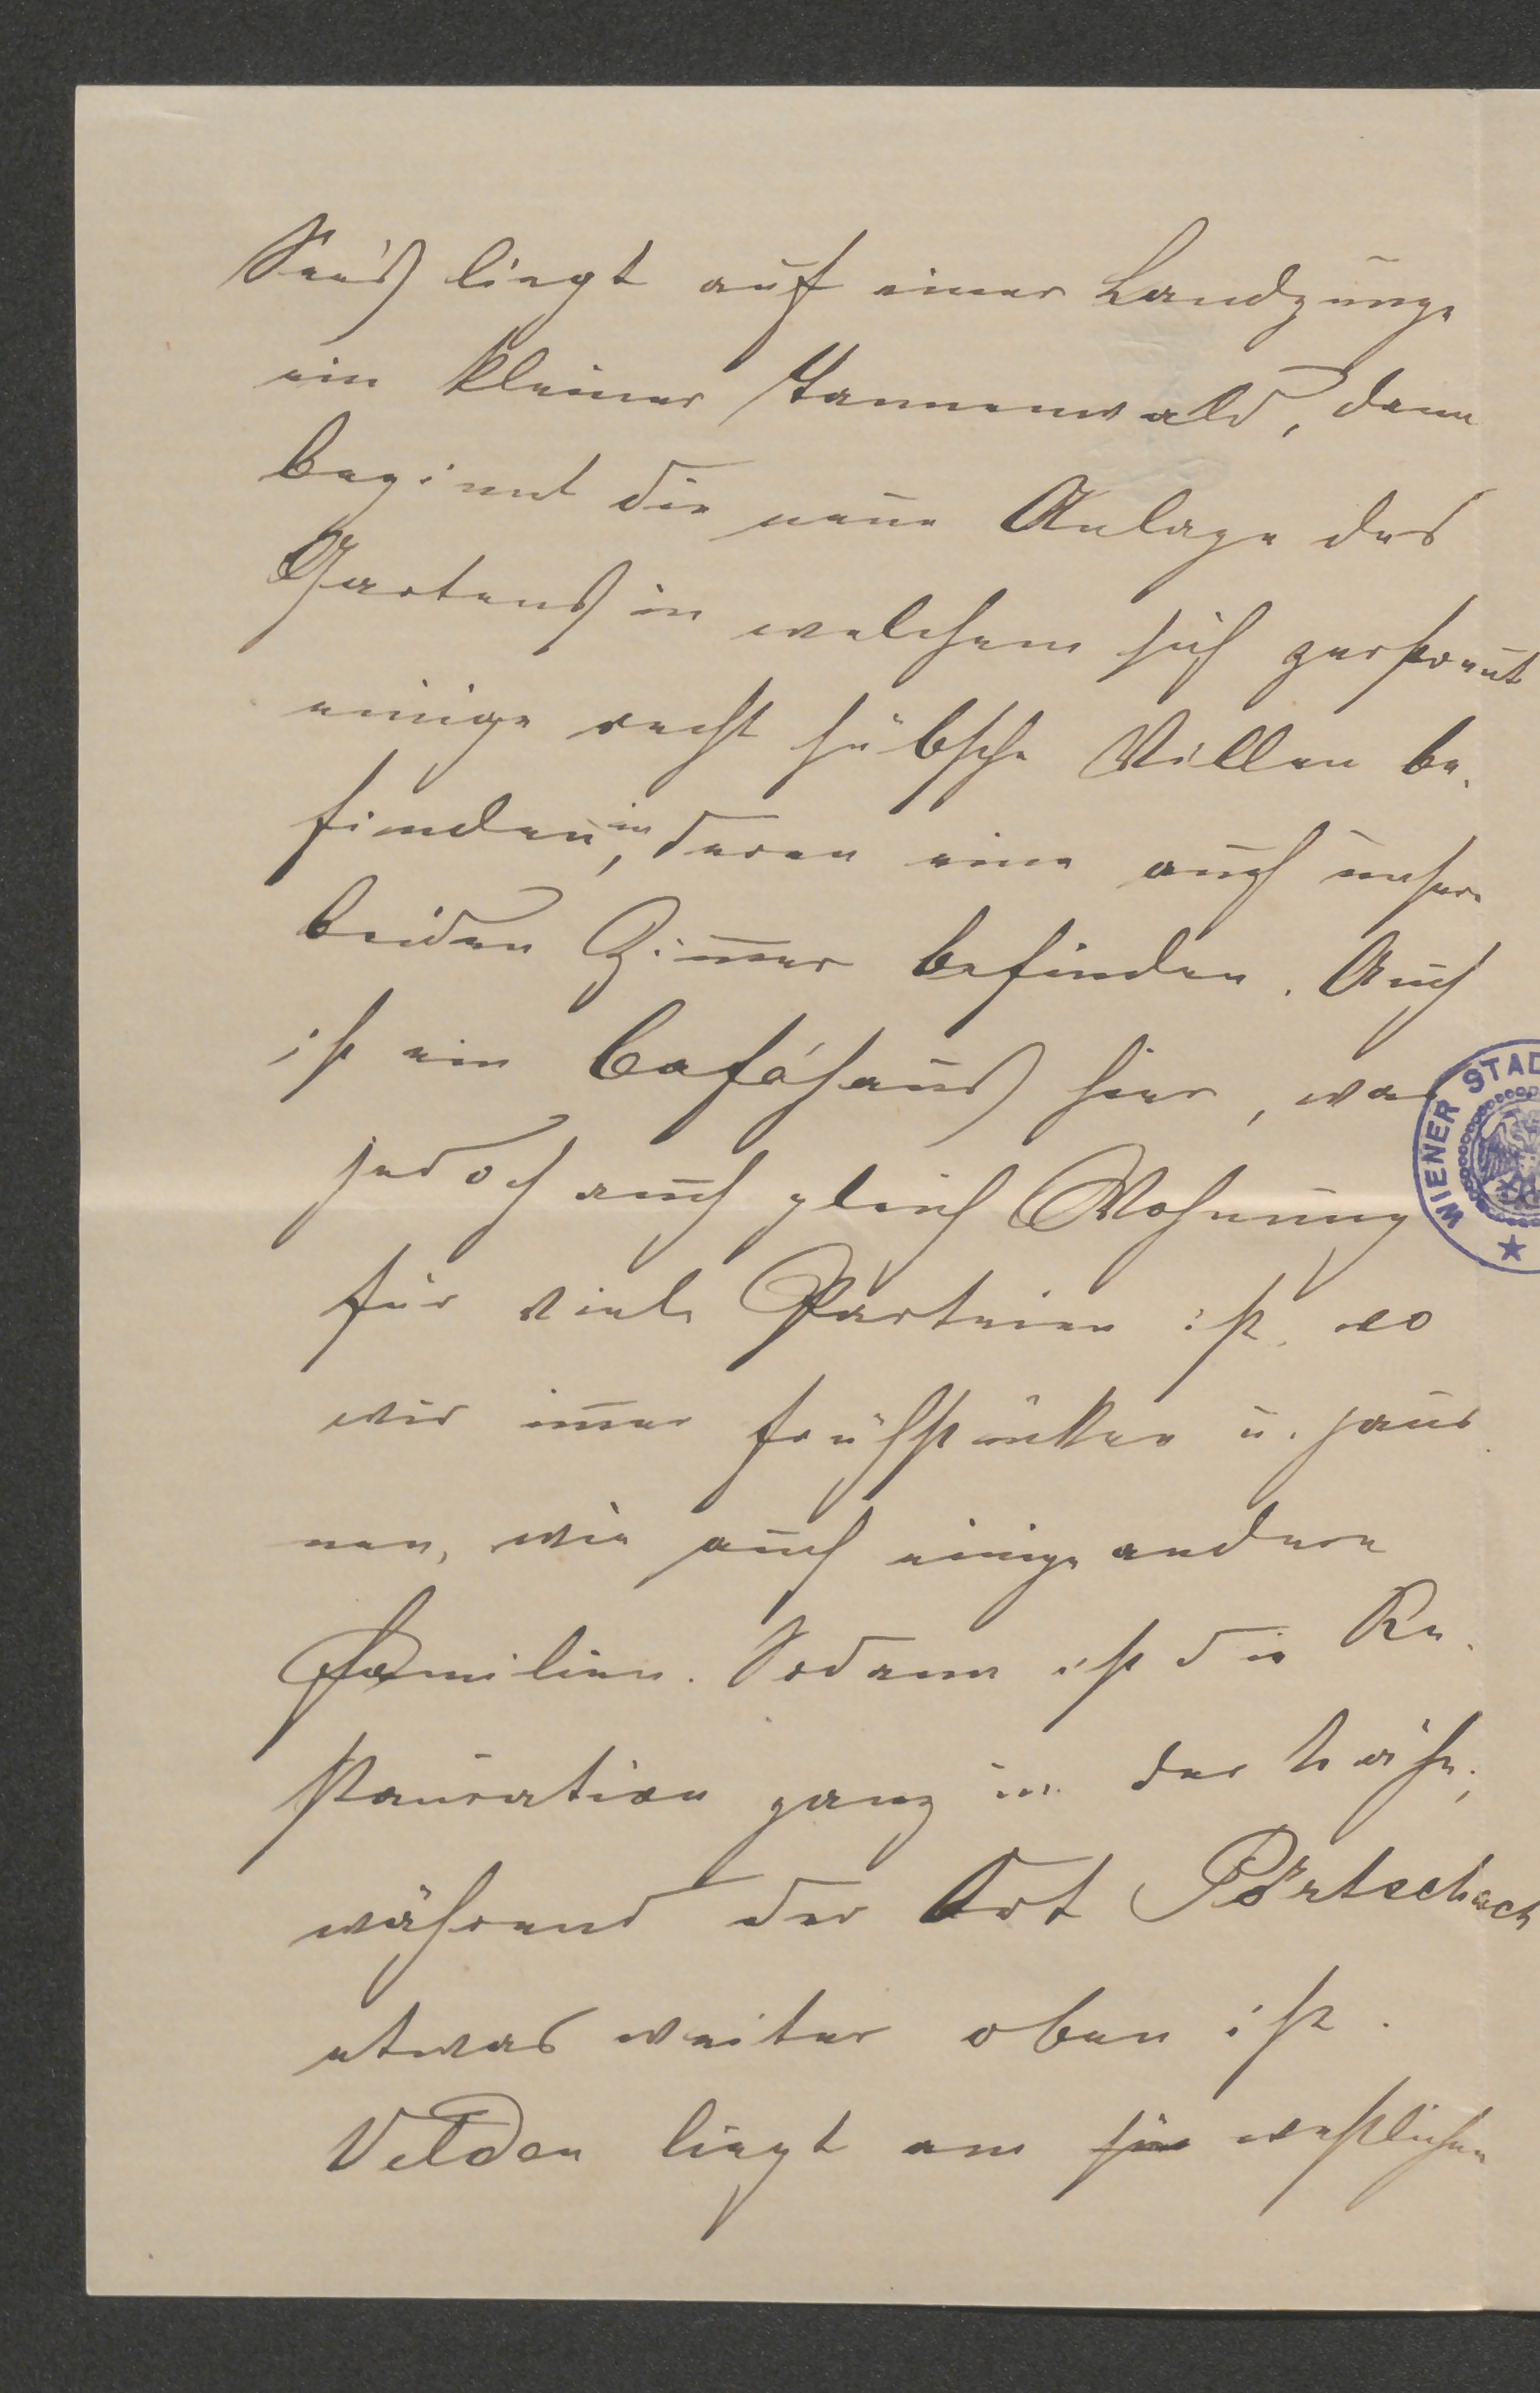 See's liegt auf einer Landzunge
ein kleiner Tannenwald, dann
beginnt die neue Anlage des
Gartens in welchem sich zerstreut
einige recht hübsche Villen be-
finden, in deren eine auch unsere
beiden Zim̅er befinden. Auch
ist ein Caféhaus hier, was
jedoch auch gleich Wohnung
für viele Parteien ist, wo
wir im̅er frühstücken u. jaus
nen, wie auch einige andere
Familien. Sodann ist die Re-
stauration ganz in der Nähe;
während der Ort Pörtschach
etwas weiter oben ist.
Velden liegt am westlichen
WIENER STAD